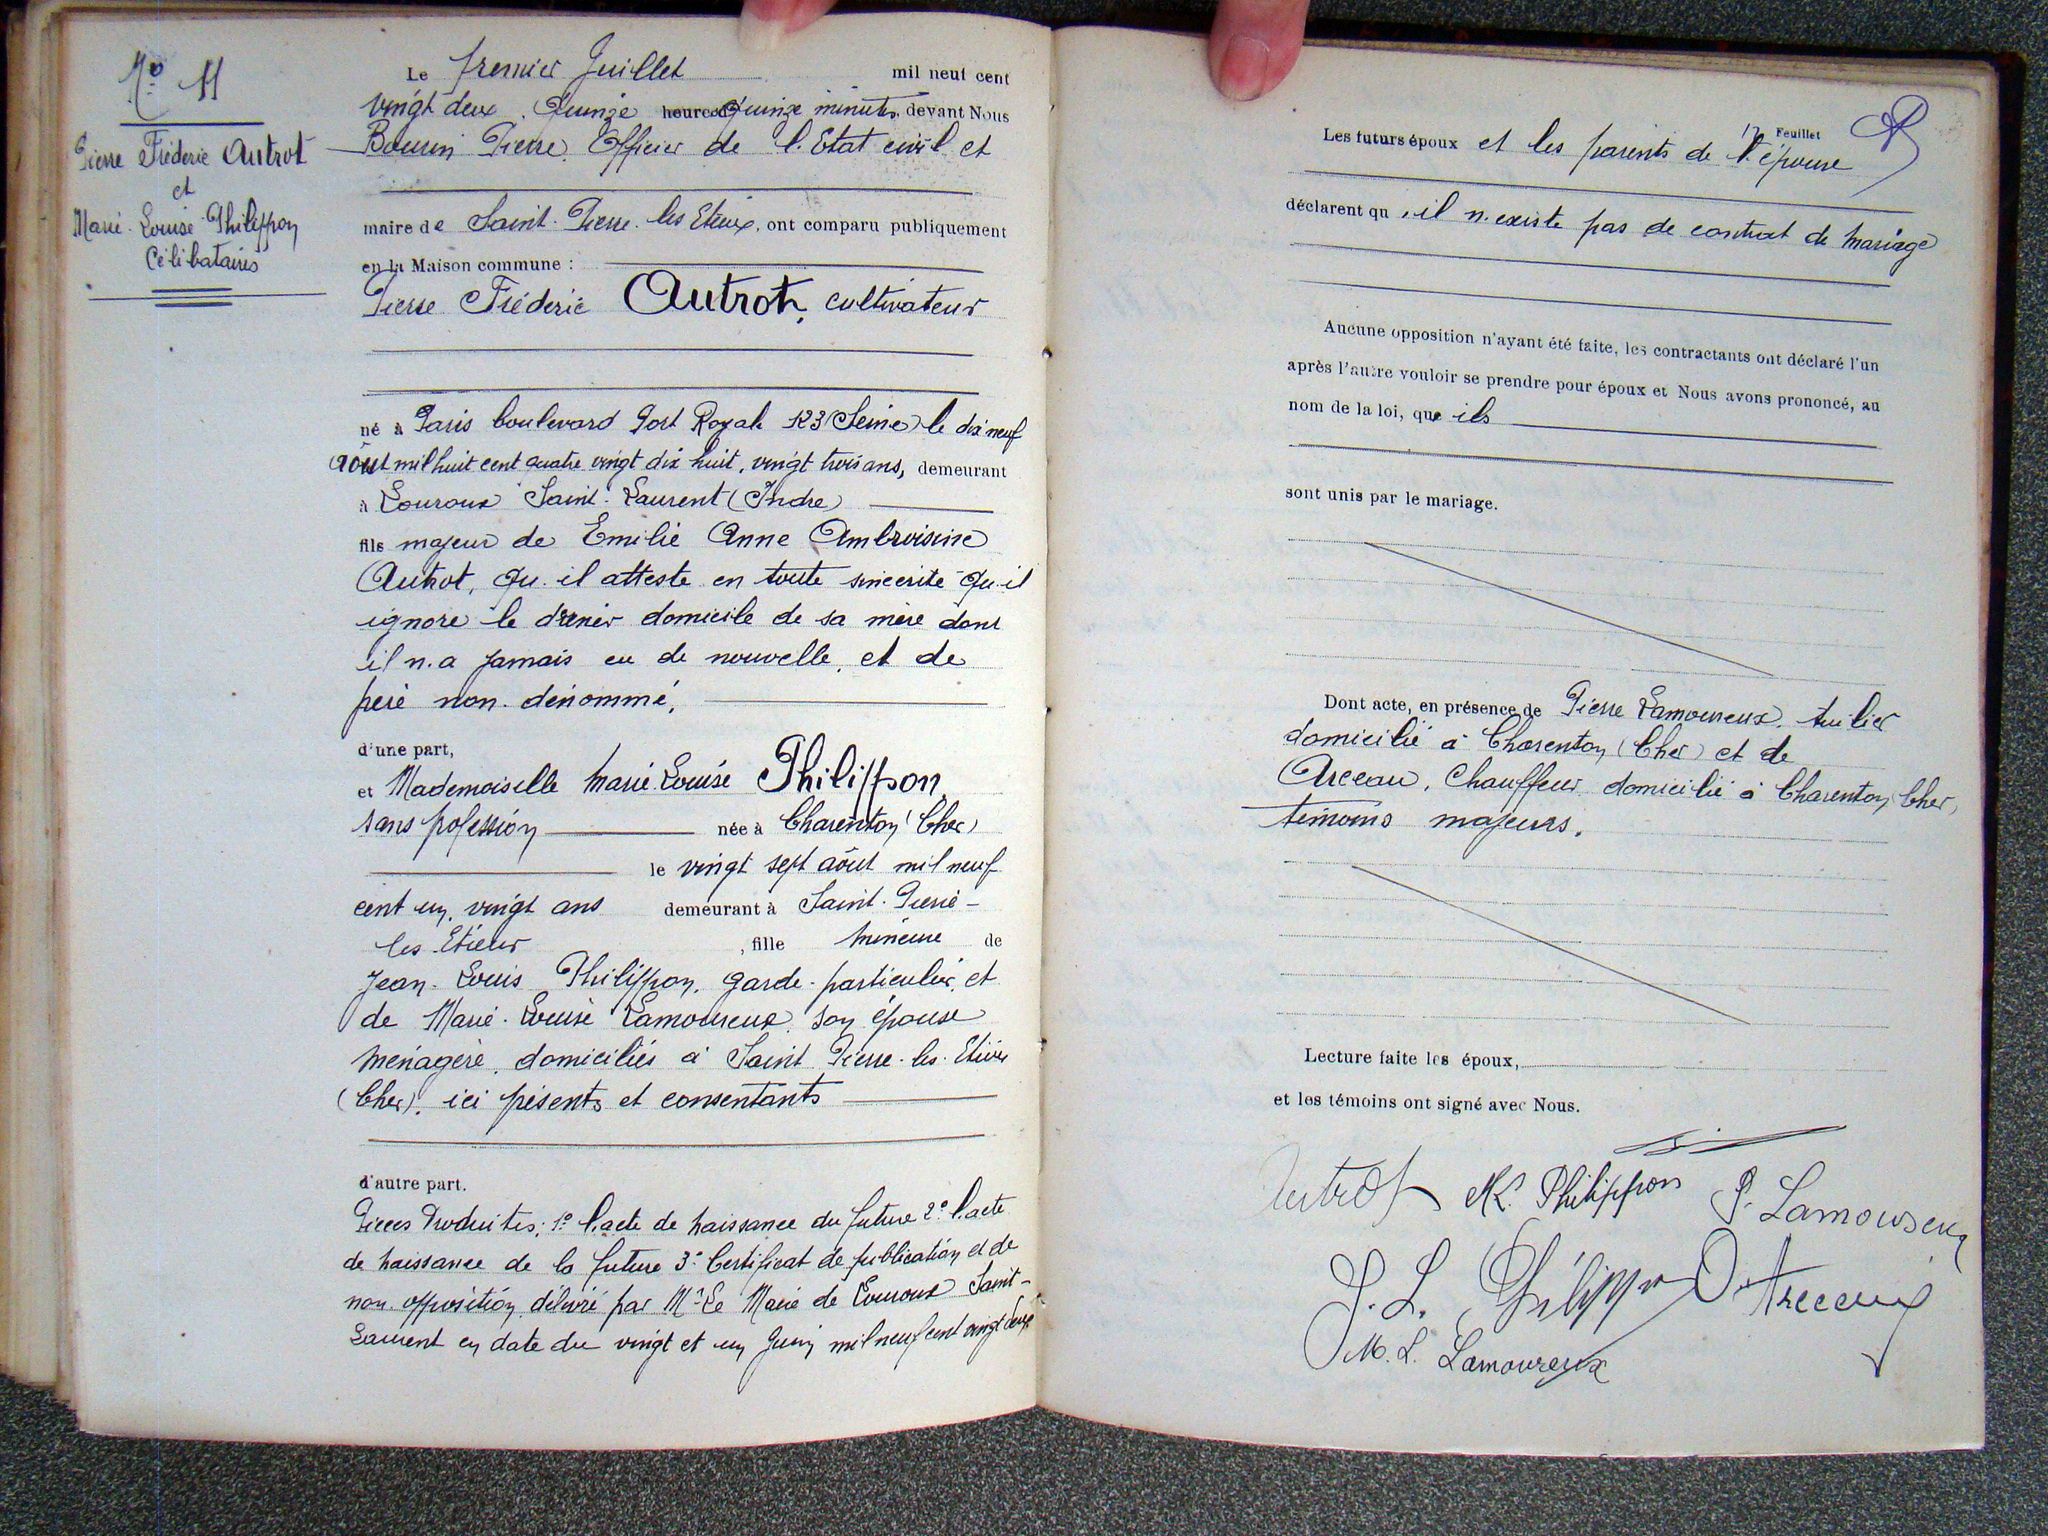 No 11
Pierre Fréderic Autrot
et
Marie-Louise Philippon
Célibataires
Le premier Juillet mil neuf cent
vingt deux, Quinze heures Quinze minutes, devant Nous
Bourin Pierre, Officier de l'Etat civil et
maire de Saint-Pierre-les Etieux, ont comparu publiquement
en la Maison commune :
Pierre Fréderic Autrot, cultivateur
né à Paris boulevard Port Royal 123 (Seine) le dix neuf
Août mil huit cent quatre vingt dix huit, vingt trois ans, demeurant
à Louroux Saint-Laurent (Indre)
fils majeur de Emilie Anne Ambroisine
Autrot, qu'il atteste en toute sincerité qu'il
ignore le drenier domicile de sa mère dont
il n'a jamais eu de nouvelle, et de
père non dénommé,
d'une part,
et Mademoiselle Marie-Louise Philippon,
sans profession née à Charenton (Cher)
le vingt sept août mil neuf
cent un, vingt ans demeurant à Saint-Pierre-
les Etieux, fille mineure de
Jean-Louis Philippon, garde-particulier, et
de Marie-Louise Lamoureux, son épouse
ménagère, domiciliés à Saint Pierre-les-Etieux
(Cher), ici présents et consentants
d'autre part.
Pièces Produites: 1° l'acte de naissance du future 2° l'acte
de naissance de la future 3° Certificat de publication et de
non opposition délivré par Mr Le Maire de Louroux Saint-
Laurent en date du vingt et un Juin mil neuf cent vingt deux
Feuillet
Les futurs époux et les parents de l'épouse
déclarent qu'il n'existe pas de contrat de mariage
Aucune opposition n'ayant été faite, les contractants ont déclaré l'un
après l'autre vouloir se prendre pour époux et Nous avons prononcé, au
nom de la loi, que ils
sont unis par le mariage.
Dont acte, en présence de Pierre Lamoureux, tuilier
domicilié à Charenton (Cher) et de
Arceau, Chauffeur domicilié à Charenton, Cher,
témoins majeurs.
Lecture faite les époux,
et les témoins ont signé avec Nous.
Autrot ML Philippon P. Lamoureux
J. L. Philippon Arceau
M. L. Lamoureux